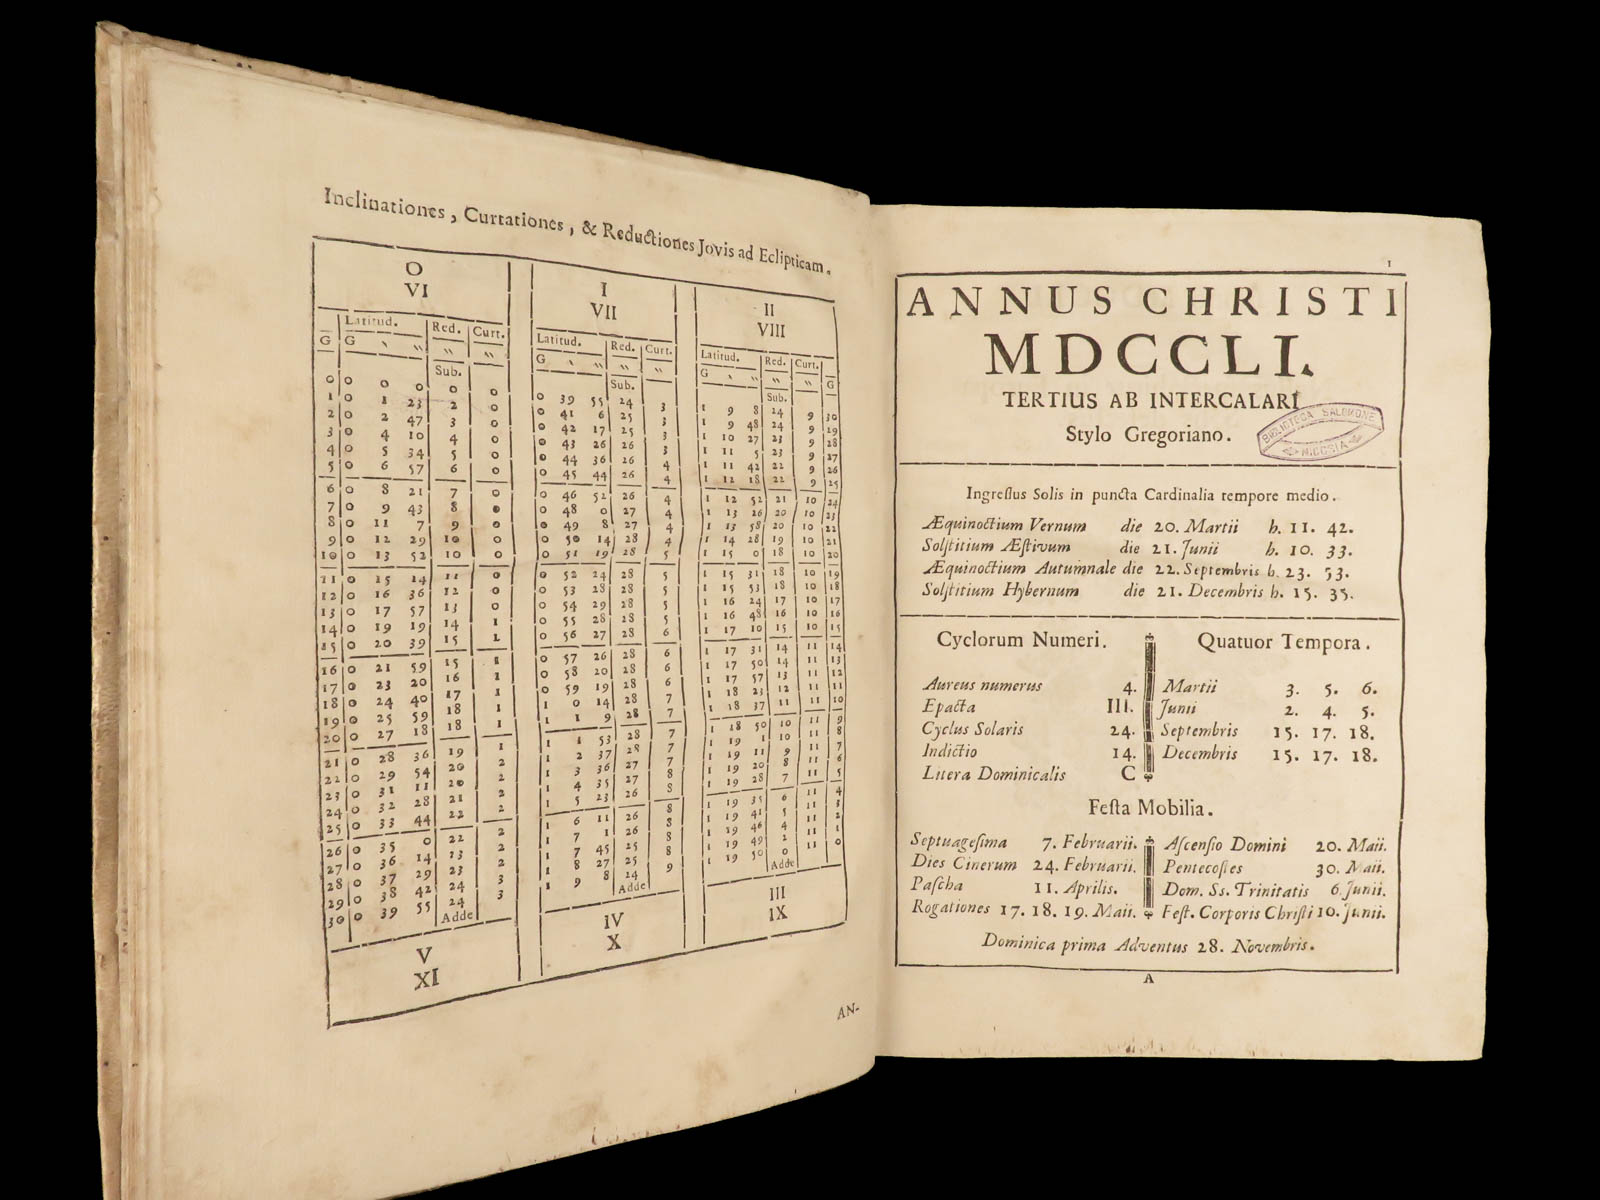 Inclinationes, Curtationes, & Reductiones Jovis ad Eclipticam.
O I II
VI VII VIII
G Latitud. Red. Curt. Latitud. Red. Curt. Latitud. Red. Curt. G
G ‵ ‶ ‶ ‶ G ‵ ‶ ‶ ‶ G ‵ ‶ ‶ ‶
Sub. Sub. Sub.
0 0 0 0 0 0 0 39 55 24 3 1 9 8 24 9 30
1 0 1 23 2 0 0 41 6 25 3 1 9 48 24 9 29
2 0 2 47 3 0 0 42 17 25 3 1 10 27 23 9 28
3 0 4 10 4 0 0 43 26 26 3 1 11 5 23 9 27
4 0 5 34 5 0 0 44 36 26 4 1 11 42 22 9 26
5 0 6 57 6 0 0 45 44 26 4 1 12 18 22 9 25
6 0 8 21 7 0 0 46 52 26 4 1 12 52 21 10 24
7 0 9 43 8 0 0 48 0 27 4 1 13 26 20 10 23
8 0 11 7 9 0 0 49 8 27 4 1 13 58 20 10 22
9 0 12 29 10 0 0 50 14 28 4 1 14 28 19 10 21
10 0 13 52 10 0 0 51 19 28 5 1 15 0 18 10 20
11 0 15 14 11 0 0 52 24 28 5 1 15 31 18 10 19
12 0 16 36 12 0 0 53 28 28 5 1 15 53 18 10 18
13 0 17 57 13 0 0 54 29 28 5 1 16 24 17 10 17
14 0 19 19 14 1 0 55 28 28 5 1 16 48 16 10 16
15 0 20 39 15 1 0 56 27 28 6 1 17 10 15 10 15
16 0 21 59 15 1 0 57 26 28 6 1 17 31 14 11 14
17 0 23 20 16 1 0 58 20 28 6 1 17 50 14 11 13
18 0 24 40 17 1 0 59 19 28 6 1 17 57 13 11 12
19 0 25 59 18 1 1 0 14 28 7 1 18 23 12 11 11
20 0 27 18 18 1 1 1 9 28 7 1 18 37 11 11 10
21 0 28 36 19 1 1 1 53 28 7 1 18 50 10 11 9
22 0 29 54 20 2 1 2 37 28 7 1 19 1 10 11 8
23 0 31 11 20 2 1 3 36 27 7 1 19 11 9 11 7
24 0 32 28 21 2 1 4 35 27 8 1 19 20 8 11 6
25 0 33 44 22 2 1 5 23 26 8 1 19 28 7 11 5
26 0 35 0 22 2 1 6 11 26 8 1 19 35 6 11 4
27 0 36 14 23 2 1 7 1 26 8 1 19 41 5 11 3
28 0 37 29 23 2 1 7 45 25 8 1 19 46 4 11 2
29 0 38 42 24 3 1 8 27 25 8 1 19 49 2 11 1
30 0 39 55 24 3 1 9 8 24 9 1 19 50 0 11 0
Adde Adde Adde
V IV III
XI X IX
AN-
1
ANNUS CHRISTI
MDCCLI.
TERTIUS AB INTERCALARI
Stylo Gregoriano.
BIBLIOTECA SALOMONE
NICOSIA
Ingreſſus Solis in puncta Cardinalia tempore medio.
Æquinoctium Vernum die 20. Martii h. 11. 42.
Solſtitium Æſtivum die 21. Junii h. 10. 33.
Æquinoctium Autumnale die 22. Septembris h. 23. 53.
Solſtitium Hybernum die 21. Decembris h. 15. 35.
Cyclorum Numeri.
Aureus numerus 4.
Epacta III.
Cyclus Solaris 24.
Indictio 14.
Litera Dominicalis C
Quatuor Tempora.
Martii 3. 5. 6.
Junii 2. 4. 5.
Septembris 15. 17. 18.
Decembris 15. 17. 18.
Feſta Mobilia.
Septuageſima 7. Februarii.
Dies Cinerum 24. Februarii.
Paſcha 11. Aprilis.
Rogationes 17. 18. 19. Maii.
Aſcenſio Domini 20. Maii.
Pentecoſtes 30. Maii.
Dom. Ss. Trinitatis 6. Junii.
Feſt. Corporis Chriſti 10. Junii.
Dominica prima Adventus 28. Novembris.
A